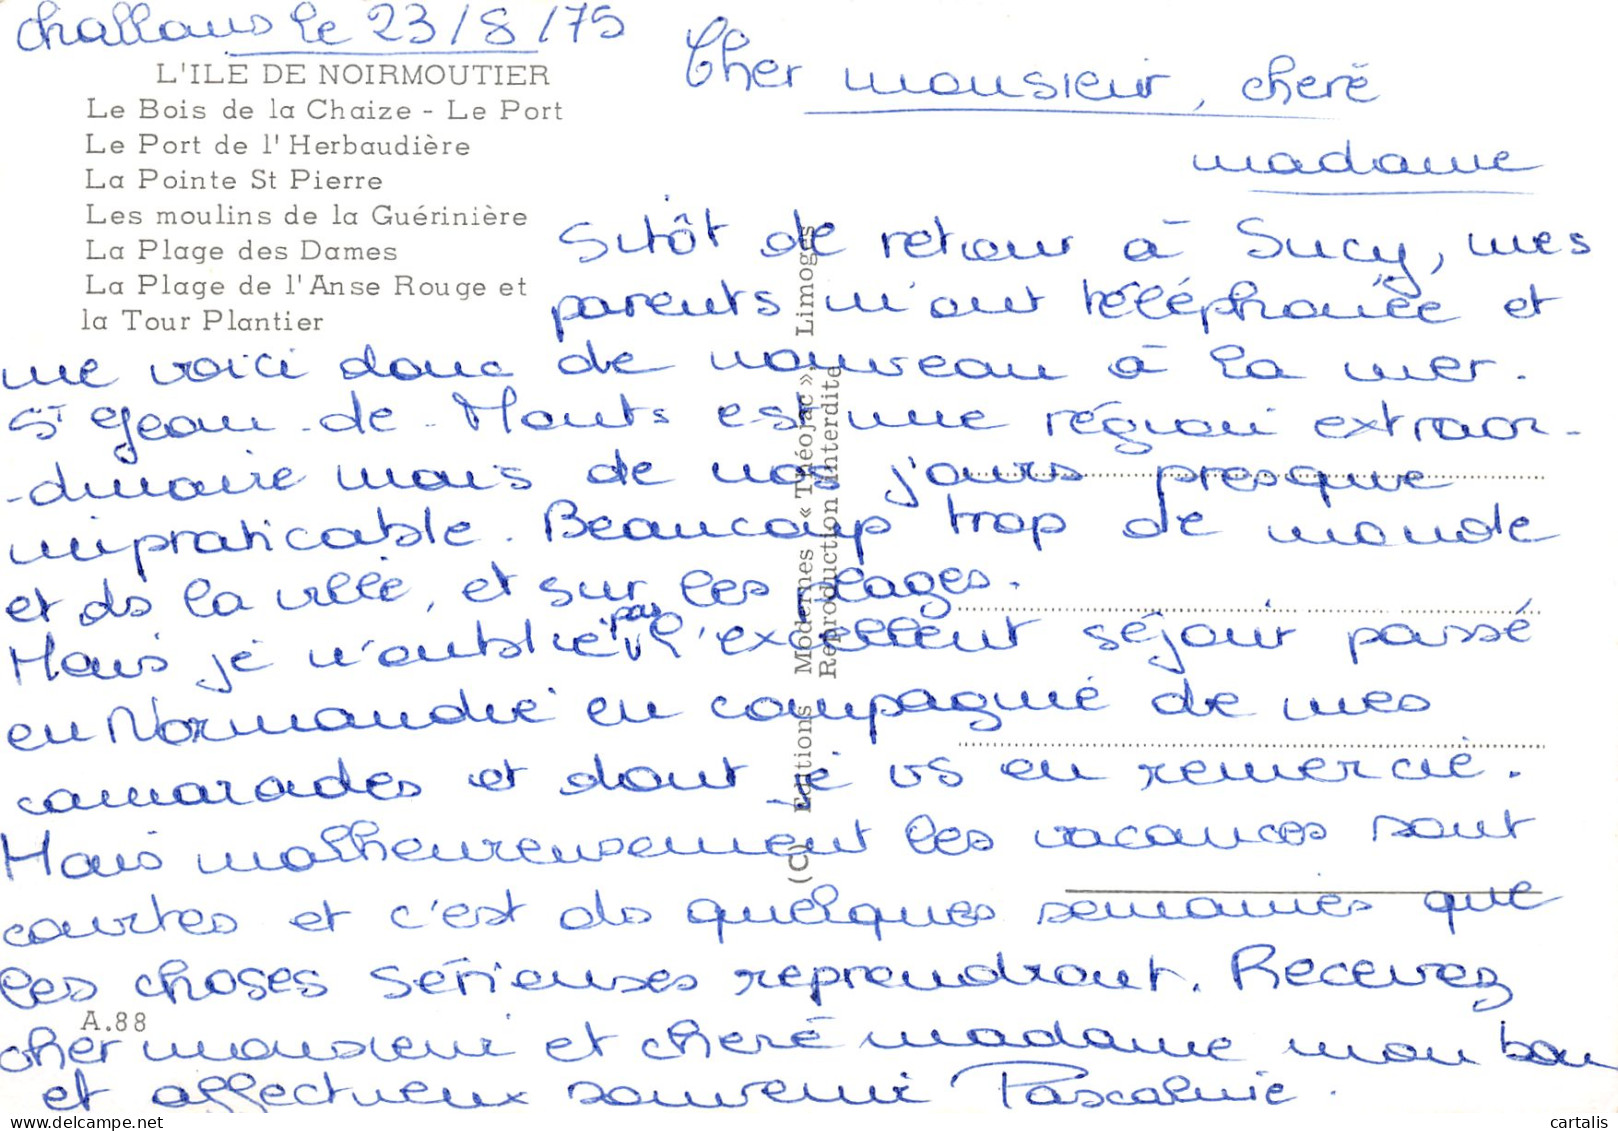 Challans le 23/8/75
L'ILE DE NOIRMOUTIER
Le Bois de la Chaize - Le Port
Le Port de l'Herbaudière
La Pointe St Pierre
Les moulins de la Guérinière
La Plage des Dames
La Plage de l'Anse Rouge et
la Tour Plantier
Cher monsieur, cherè
madame
Sitôt de retour à Sucy, mes
parents m'ont téléphonée et
me voici donc de nouveau à la mer.
St Jean-de-Monts est une région extraor-
-dinaire mais de nos jours presque
impraticable. Beaucoup trop de monde
et ds la ville, et sur les plages.
Mais je n'oublie pas l'excellent séjour passé
en Normandie en compagnie de mes
camarades et dont je vs en remercie.
Mais malheureusement les vacances sont
courtes et c'est ds quelques semaines que
les choses sérieuses reprendront. Recevez
cher monsieur et cherè madame mon bon
et affectueux souvenir Pascaline.
A.88
(C) Editions Modernes « Théojac », Limoges
Reproduction interdite
cartalis